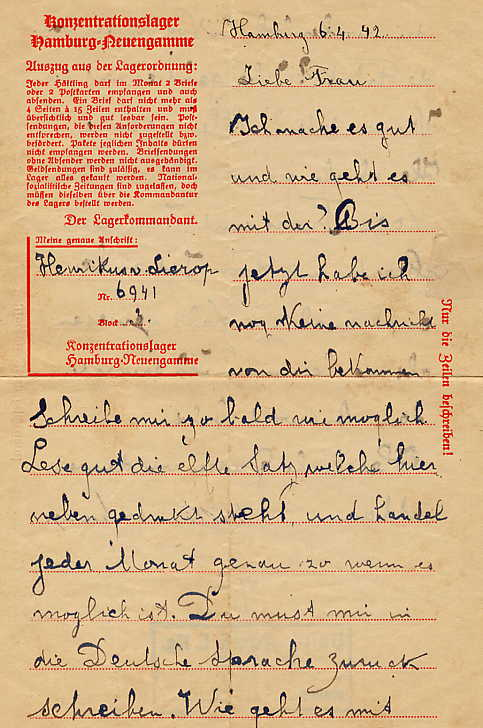 Konzentrationslager
Hamburg-Neuengamme
Auszug aus der Lagerordnung:
Jeder Häftling darf im Monat 2 Briefe
oder 2 Postkarten empfangen und auch
absenden. Ein Brief darf nicht mehr als
4 Seiten à 15 Zeilen enthalten und muß
übersichtlich und gut lesbar sein. Post-
sendungen, die diesen Anforderungen nicht
entsprechen, werden nicht zugestellt bzw.
befördert. Pakete jeglichen Inhalts dürfen
nicht empfangen werden. Briefsendungen
ohne Absender werden nicht ausgehändigt.
Geldsendungen sind zulässig, es kann im
Lager alles gekauft werden. National-
sozialistische Zeitungen sind zugelassen, doch
müssen dieselben über die Kommandantur
des Lagers bestellt werden.
Der Lagerkommandant.
Meine genaue Anschrift:
Henrikus v. Lierop
Nr. 6941
Block 2.
Konzentrationslager
Hamburg-Neuengamme
Hamburg 6.4.42.
Liebe Frau
Ich mache es gut
und wie geht es
mit dei? Bis
jetzt habe ich
nog keine nachricht
von dir bekommen
Nur die Zeilen beschreiben!
Schreibe mir zo bald wie moglich
Lese gut die elfte Satz welche hier
neben gedrukt steht, und handel
jeder Monat genau zo wenn es
moglich ist. Du must mir in
die Deutsche sprache zuruck
schreiben. Wie geht es mit